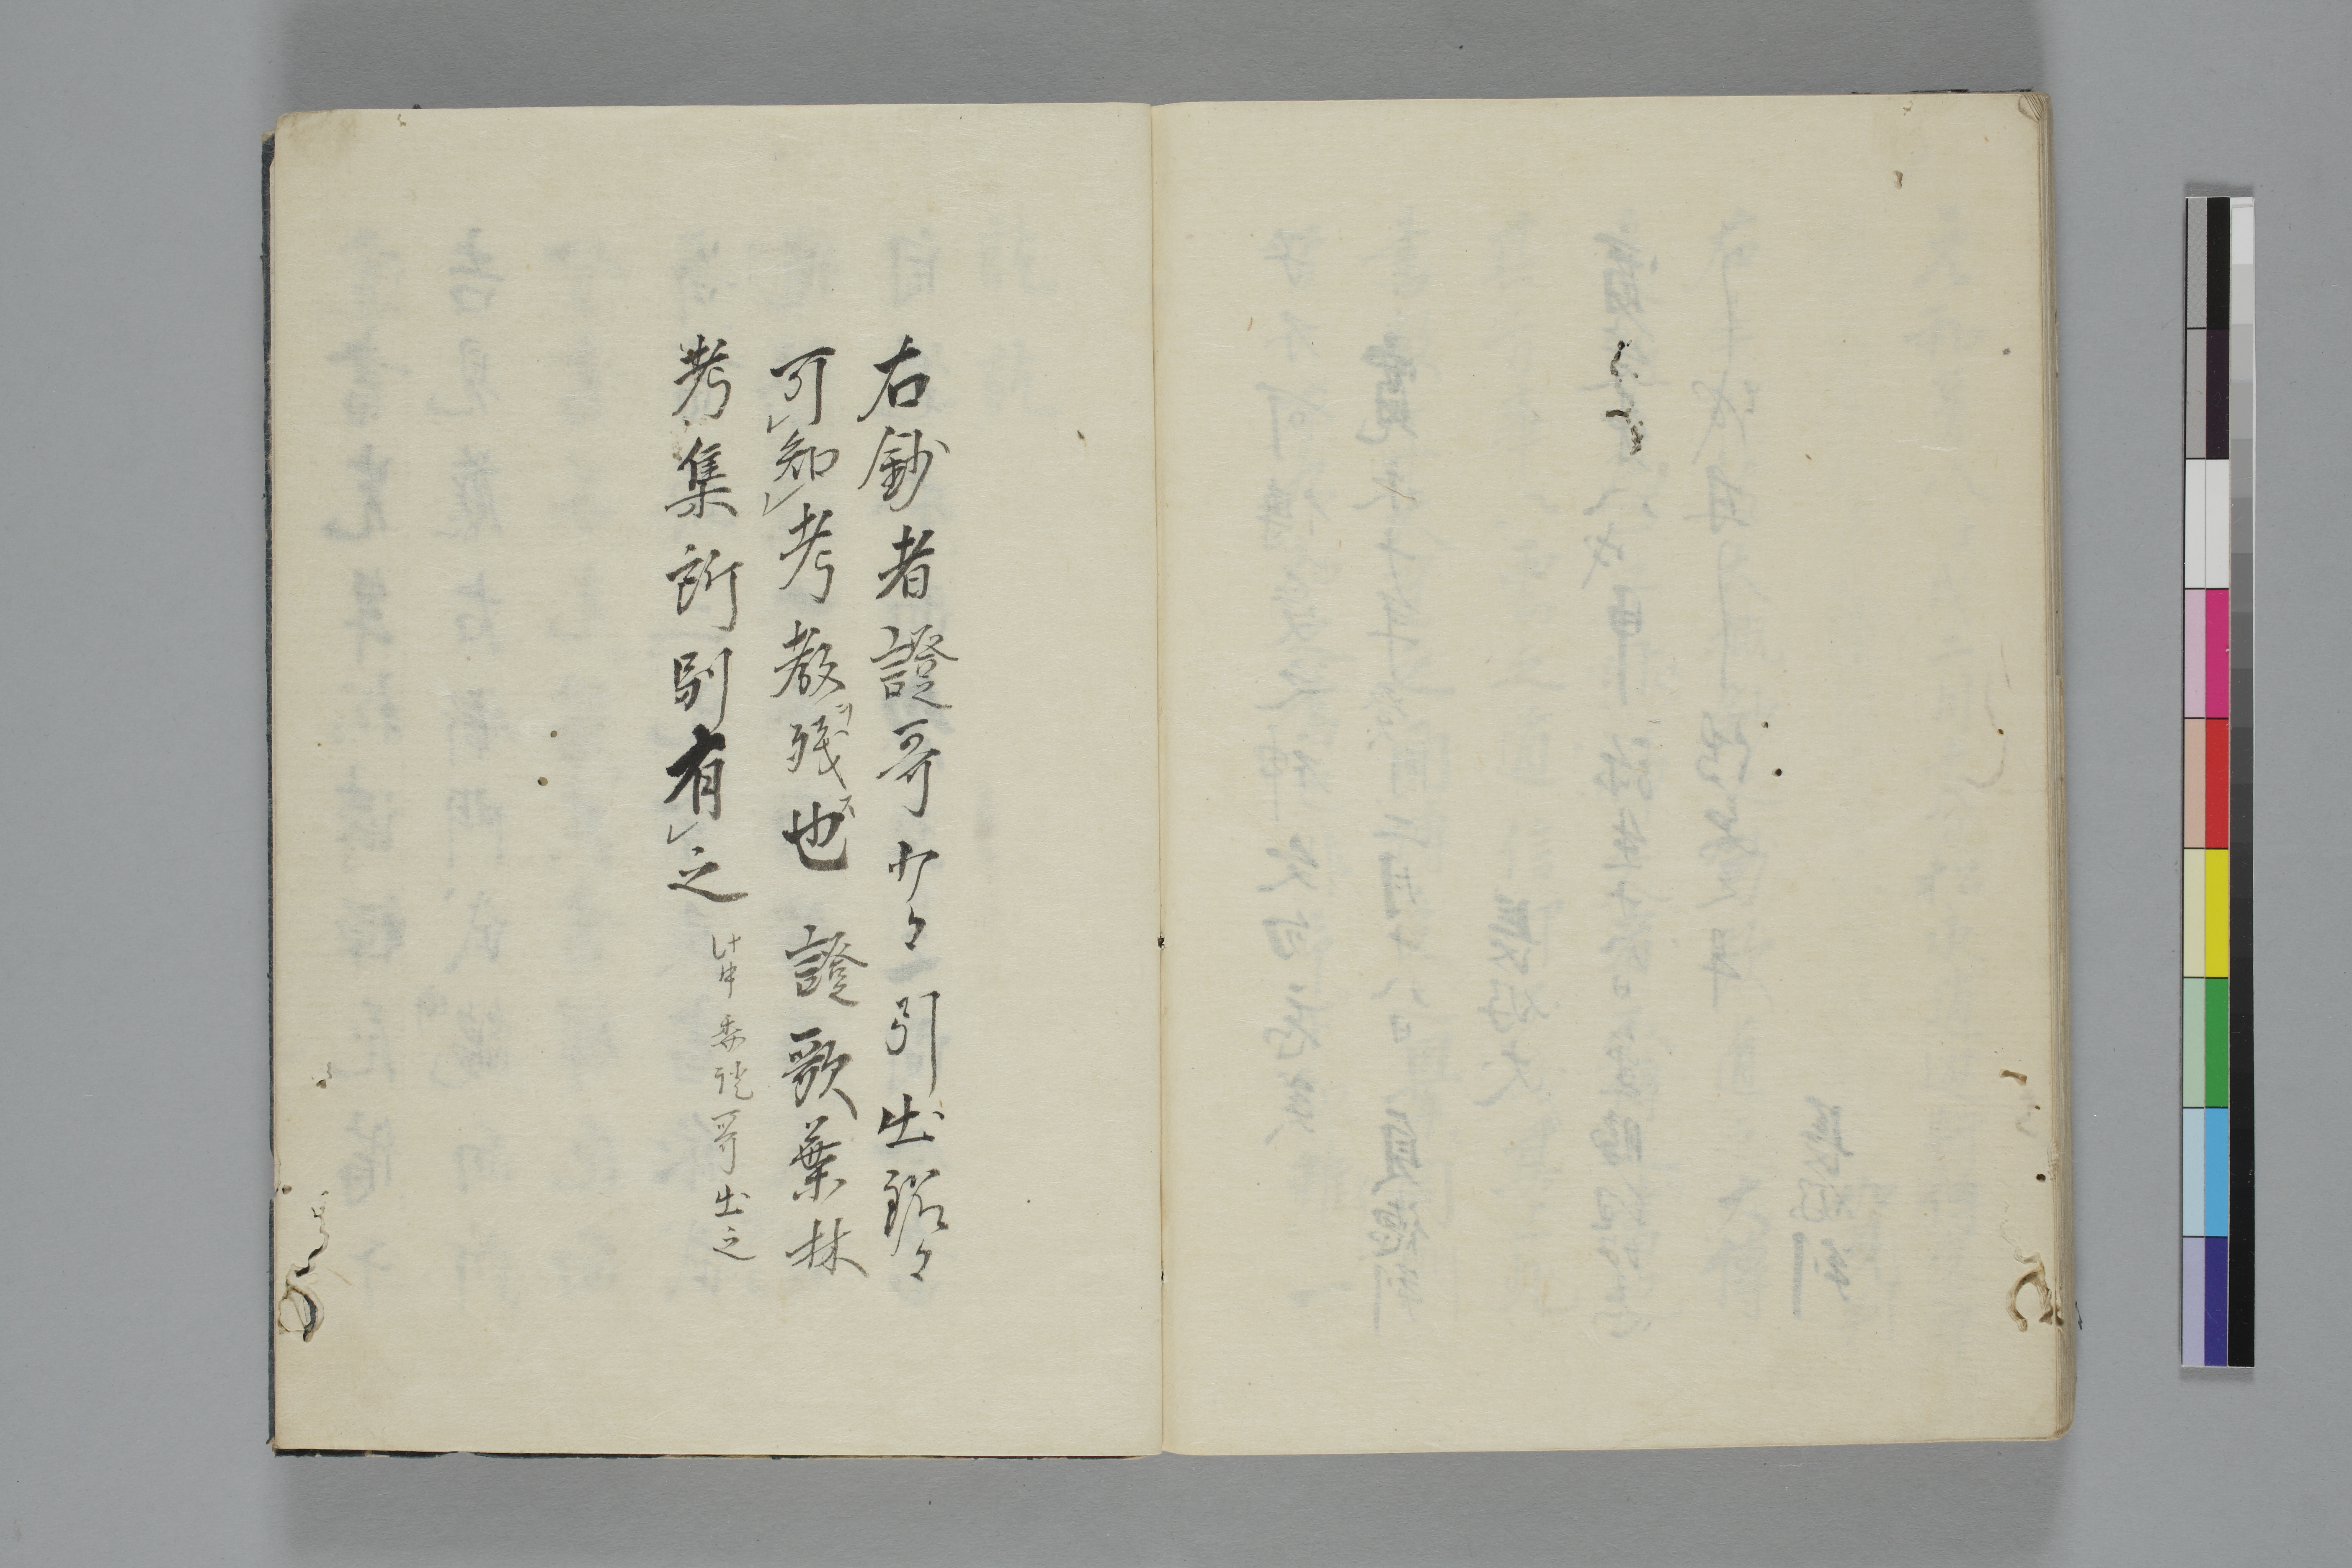 右鈔者證哥少々引出銘々
可レ知レ考教残也證歌葉林
考集所別有レ之
委證哥出之